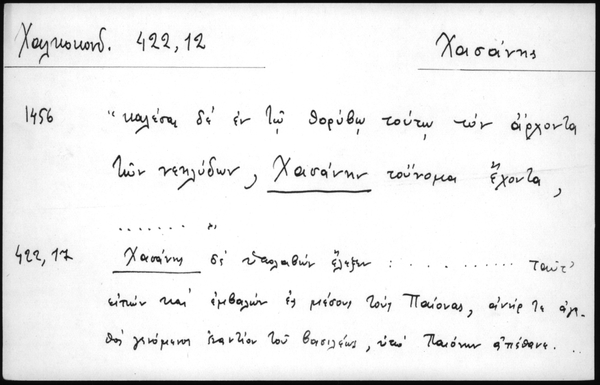 Χαλκοκονδ. 422,12 Χασάνης
1456 "καλέσαι δὲ ἐν τῷ θορύβῳ τούτῳ τὸν ἄρχοντα
τῶν νεηλύδων, Χασάνην τοὔνομα ἔχοντα,
....... "
422,17 Χασάνης δὲ ὑπολαβὼν ἔλεξεν : .......... ταῦτ'
εἰπὼν καὶ ἐμβαλὼν ἐς μέσους τοὺς Παίονας, ἀνήρ τε ἀγα-
θὸς γενόμενος ἐναντίον τοῦ βασιλέως, ὑπὸ Παιόνων ἀπέθανε. ..